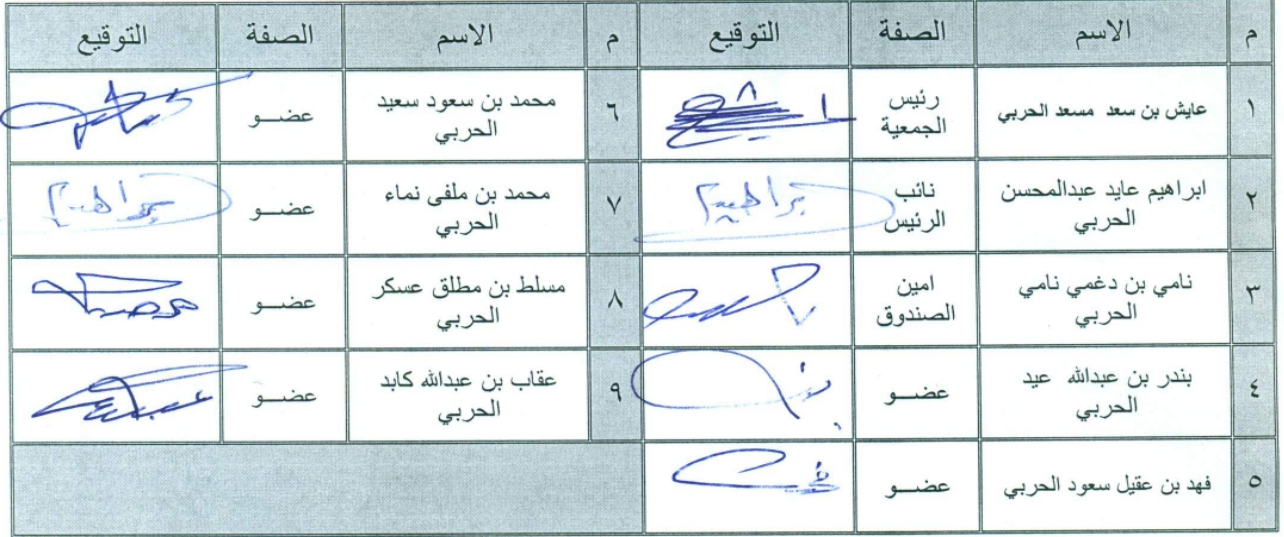 م الاسم الصفة التوقيع م الاسم الصفة التوقيع
١ عايش بن سعد مسعد الحربي رئيس الجمعية ٦ محمد بن سعود سعيد الحربي عضــو
٢ ابراهيم عايد عبدالمحسن الحربي نائب الرئيس ابراهيم ٧ محمد بن ملفى نماء الحربي عضــو ابراهيم
٣ نامي بن دغمي نامي الحربي امين الصندوق ٨ مسلط بن مطلق عسكر الحربي عضــو
٤ بندر بن عبدالله عيد الحربي عضــو ٩ عقاب بن عبدالله كابد الحربي عضــو
٥ فهد بن عقيل سعود الحربي عضــو